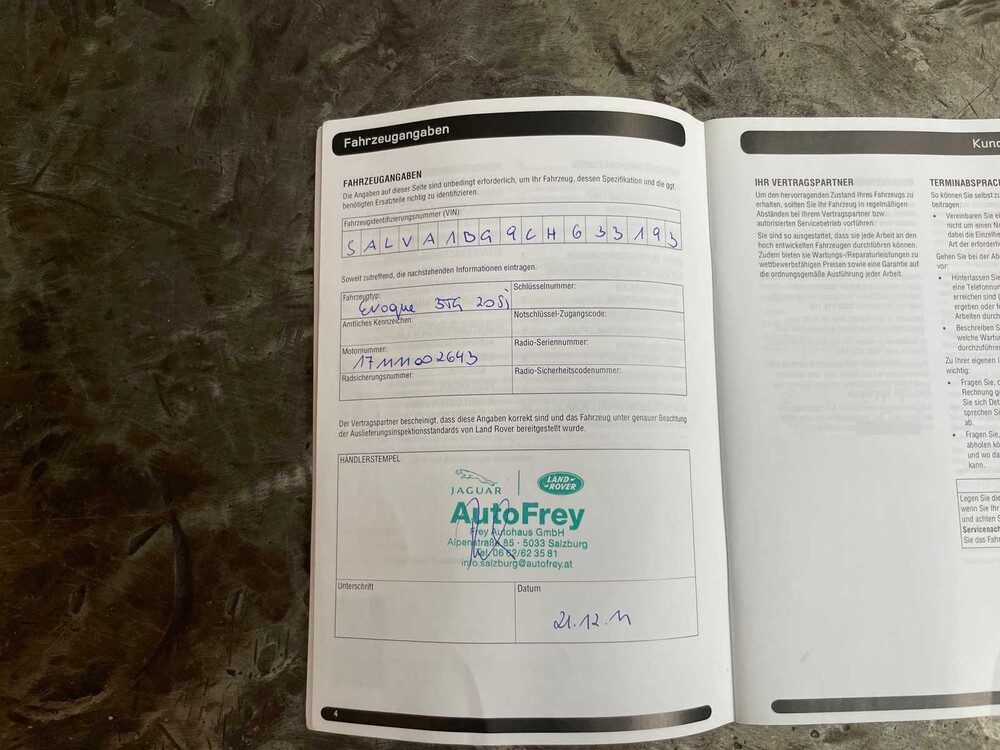 Fahrzeugangaben
FAHRZEUGANGABEN
Die Angaben auf dieser Seite sind unbedingt erforderlich, um Ihr Fahrzeug, dessen Spezifikation und die ggf.
benötigten Ersatzteile richtig zu identifizieren.
Fahrzeugidentifizierungsnummer (VIN):
SALVA1BG9CH633193
Soweit zutreffend, die nachstehenden Informationen eintragen.
Fahrzeugtyp:
Evoque 5TG 20Si
Schlüsselnummer:
Amtliches Kennzeichen:
Notschlüssel-Zugangscode:
Motornummer:
Radio-Seriennummer:
Radsicherungsnummer:
Radio-Sicherheitscodenummer:
Der Vertragspartner bescheinigt, dass diese Angaben korrekt sind und das Fahrzeug unter genauer Beachtung
der Auslieferungsinspektionsstandards von Land Rover bereitgestellt wurde.
HÄNDLERSTEMPEL
JAGUAR
LAND-
ROVER
AutoFrey
Frey Autohaus GmbH
Alpenstraße 85 · 5033 Salzburg
Tel. 06 62/62 35 81
info.salzburg@autofrey.at
Unterschrift
Datum
21.12.11
4
Kund
IHR VERTRAGSPARTNER
Um den hervorragenden Zustand Ihres Fahrzeugs zu
erhalten, sollten Sie Ihr Fahrzeug in regelmäßigen
Abständen bei Ihrem Vertragspartner bzw.
autorisierten Servicebetrieb vorführen.
Sie sind so ausgestattet, dass sie jede Arbeit an den
hoch entwickelten Fahrzeugen durchführen können.
Zudem bieten sie Wartungs-/Reparaturleistungen zu
wettbewerbsfähigen Preisen sowie eine Garantie auf
die ordnungsgemäße Ausführung jeder Arbeit.
TERMINABSPRACH
So können Sie selbst zu
beitragen:
• Vereinbaren Sie e
nicht um einen No
dabei die Einzelhe
Art der erforderli
Gehen Sie bei der Ab
vor:
• Hinterlassen Sie
eine Telefonnum
erreichen sind
ergeben oder f
Arbeiten durch
• Beschreiben S
welche Wartu
durchzuführe
Zu Ihrer eigenen
wichtig:
• Fragen Sie, o
Rechnung g
Sie sich Det
sprechen Si
ab.
• Fragen Sie,
abholen kö
und wo da
kann.
Legen Sie die
wenn Sie Ihr
und achten S
Servicenach
Sie das Fahr